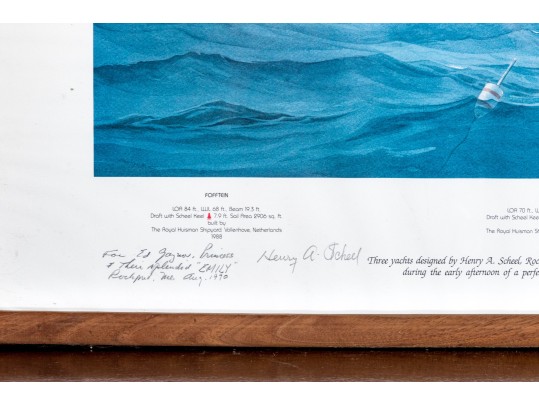 FOFFTEIN
LOA 84 ft., LWL 68 ft., Beam 19.3 ft.
Draft with Scheel Keel 7.9 ft. Sail Area 2906 sq. ft.
built by
The Royal Huisman Shipyard, Vollenhove, Netherlands
1988
LOA 70 ft., LW
Draft with Scheel Kee
The Royal Huisman Sh
For Ed Gaynor, Princess
& their splendid "EMILY"
Rockport, Me. Aug. 1990
Henry A. Scheel
Three yachts designed by Henry A. Scheel, Roc
during the early afternoon of a perfe